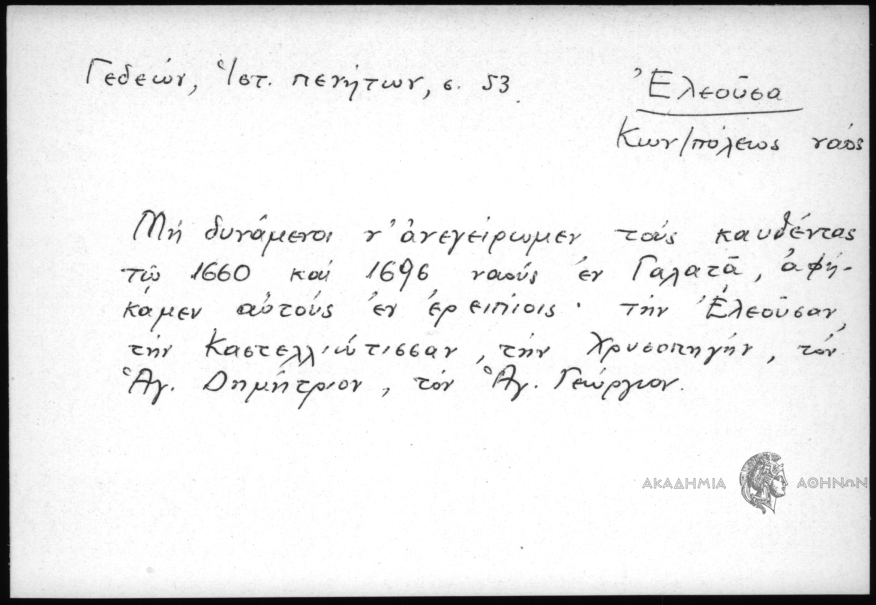 Γεδεών, Ἱστ. πενήτων, σ. 53
Ἐλεοῦσα
Κων/πόλεως ναός
Μή δυνάμενοι ν' ἀνεγείρωμεν τούς καυθέντας
τῷ 1660 καί 1696 ναούς ἐν Γαλατᾷ, ἀφή-
καμεν αὐτούς ἐν ἐρειπίοις· τήν Ἐλεοῦσαν,
τήν Καστελλιώτισσαν, τήν Χρυσοπηγήν, τόν
Ἅγ. Δημήτριον, τόν Ἅγ. Γεώργιον.
ΑΚΑΔΗΜΙΑ ΑΘΗΝΩΝ